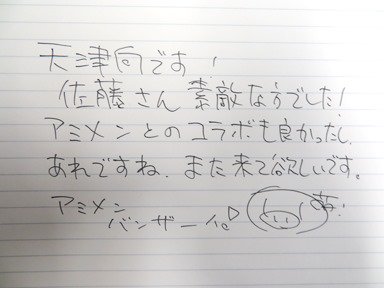 天津向です!
佐藤さん 素敵な方でした!
アミメンとのコラボも良かったし、
あれですね、また来て欲しいです。
アミメン
バンザーイ